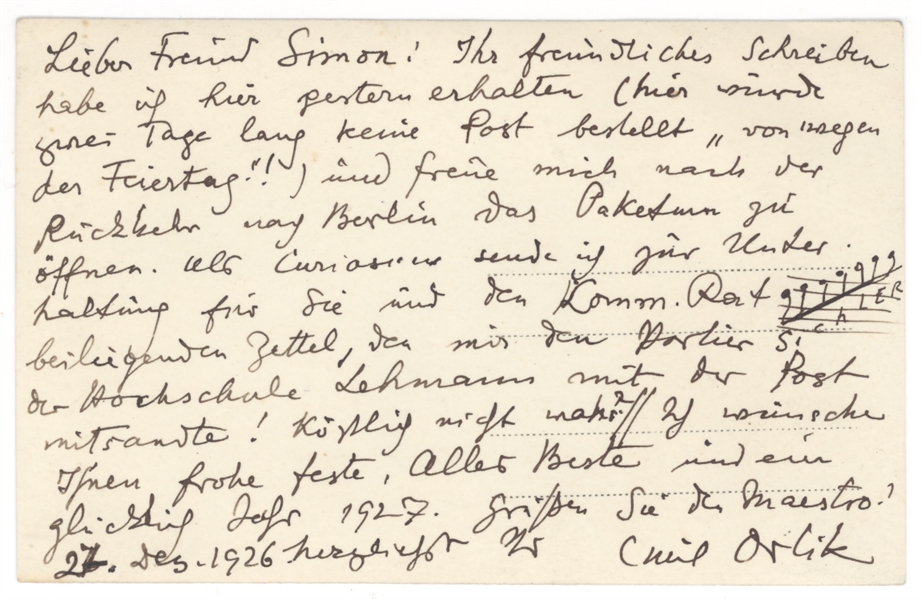 Lieber Freund Simon! Ihr freundliches Schreiben
habe ich hier gestern erhalten (hier wurde
zwei Tage lang keine Post bestellt „von wegen
der Feiertag"!!) und freue mich nach der
Rückkehr nach Berlin das Paketum zu
öffnen. Als Curiosum sende ich zur Unter-
haltung für Sie und den Komm. Rat
SCHILLER
beiliegenden Zettel, den mir der Portier
der Hochschule Lehmann mit der Post
mitsandte! Köstlich nicht wahr? Ich wünsche
Ihnen frohe Feste, Alles Beste und ein
glücklich Jahr 1927. Grüßen Sie den Maestro!
27. Dez. 1926 herzlichst Ihr Emil Orlik